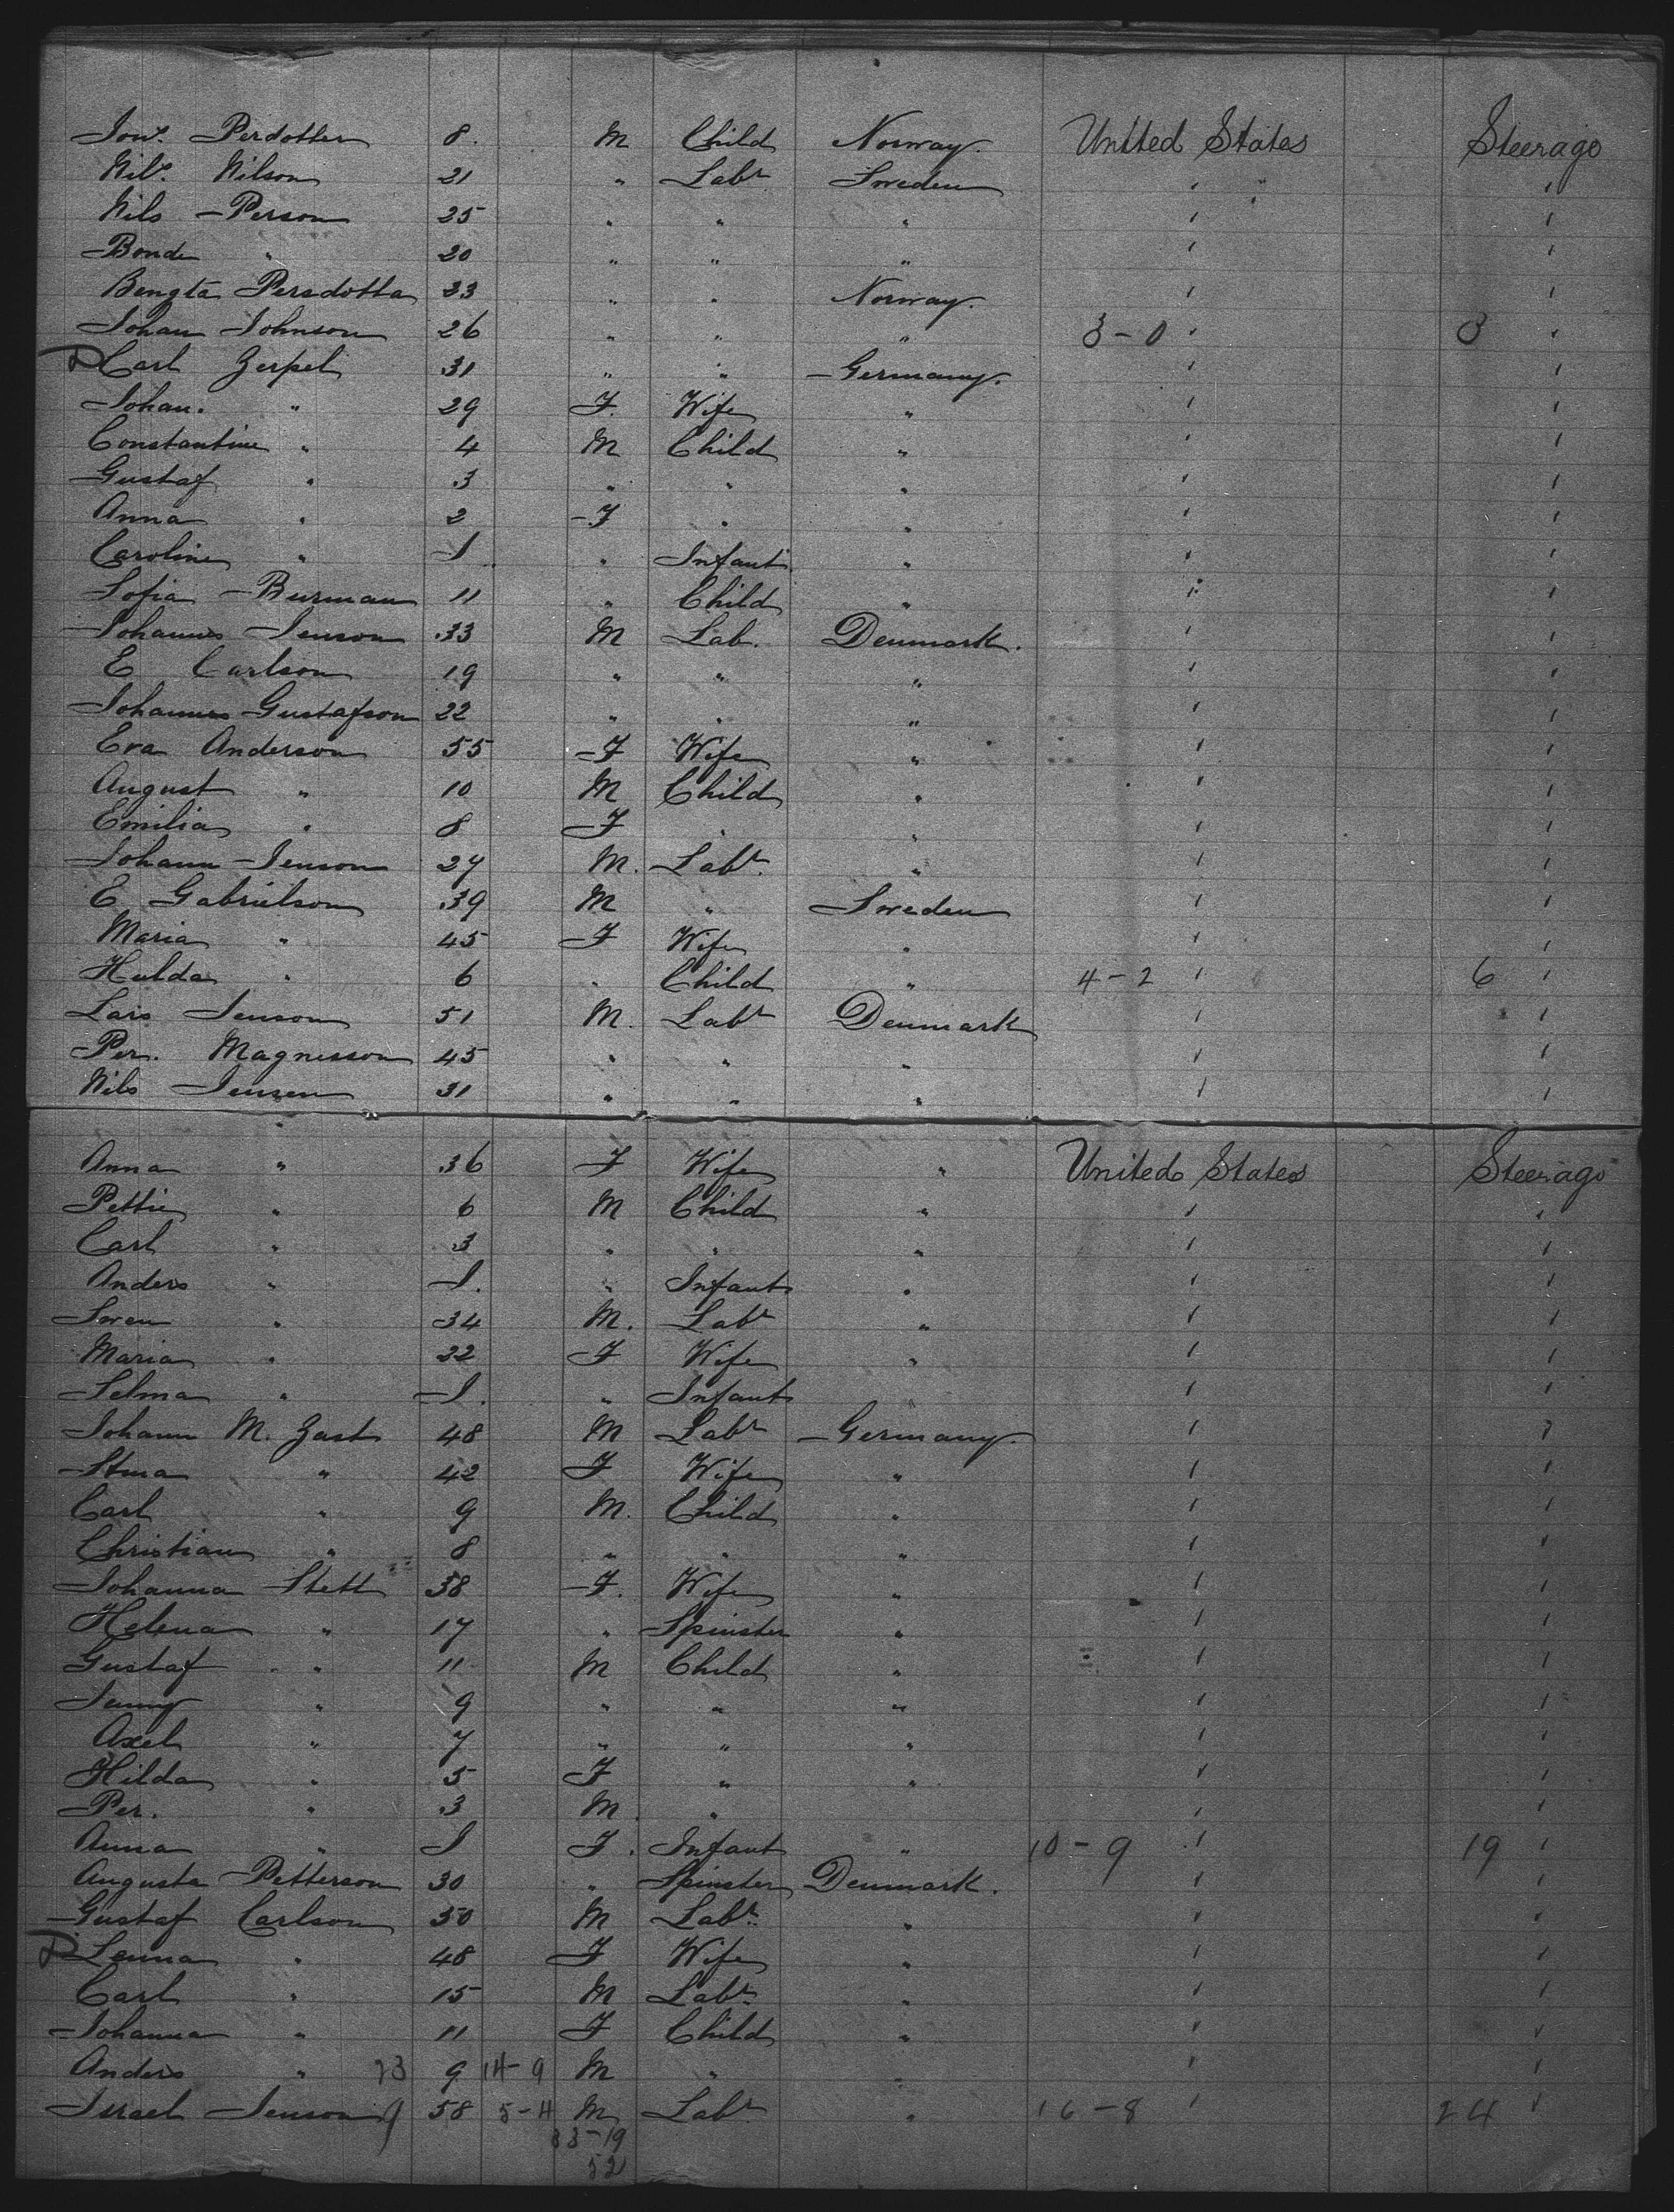 Jonˢ. Perdotter 8. M Child Norway. United States Steerage
Nilˢ. Nilson 21 " Labr Sweden " "
Nils Person 25 " " " " "
Bonde " 20 " " " " "
Bengta Persdotta 23 " " Norway. " "
Johan Johnson 26 " " " 3-0 " 3 "
Carl Zerpel 31 " " Germany. " "
Johan. " 29 F. Wife " " "
Constantine " 4 M Child " " "
Gustaf " 3 " " " " "
Anna " 2 F " " " "
Caroline " I " Infant " " "
Sofia Burman 11 " Child " " "
Johannes Jenson 33 M Lab. Denmark. " "
E Carlson 19 " " " " "
Johannes Gustafson 22 " " " " "
Eva Anderson 55 F Wife " " "
August " 10 M Child " " "
Emilia " 8 F " " " "
Johann Jenson 27 M. Labr. " " "
E Gabrielson 39 M " Sweden " "
Maria " 45 F Wife " " "
Hulda " 6 " Child " 4-2 " 6 "
Lars Jenson 51 M. Labr Denmark " "
Per. Magnesson 45 " " " " "
Nils Jensen 31 " " " " "
Anna " 36 F Wife " United States Steerage
Pettie " 6 M Child " " "
Carl " 3 " " " " "
Anders " I. " Infant " " "
Soren " 34 M. Labr " " "
Maria " 22 F Wife " " "
Selma " I. " Infant " "
Johann M. Zast 48 M Labr Germany. " "
Stina " 42 F Wife " " "
Carl " 9 M. Child " " "
Christian " 8 " " " " "
Johanna Stett 38 F. Wife " " "
Helena " 17 " Spinster " " "
Gustaf " 11 M Child " " "
Jenny " 9 " " " " "
Axel " 7 " " " " "
Hilda " 5 F " " " "
Per. " 3 M. " " "
Anna " I F. Infant " 10-9 " 19 "
Augusta Petterson 30 " Spinster Denmark. " "
Gustaf Carlson 50 M Labr. " " "
Lenna " 48 F Wife " " "
Carl " 15 M Labr. " " "
Johanna " 11 F Child " " "
Anders " 23 9 14-9 M " " " "
Israel Jenson 9 58 5-4 M Labr " 16-8 " 24 "
33-19
52